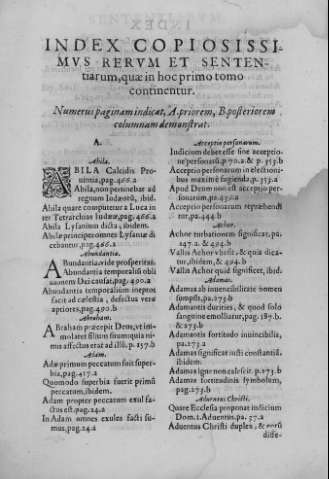 INDEX COPIOSISSI-
MVS RERVM ET SENTEN-
tiarum, quæ in hoc primo tomo
continentur.
Numerus paginam indicat, A. priorem, B. posteriorem
columnam demonstrat.
A.
Abila.
ABILA Calcidis Pro-
uintia, pag. 466.a
Abila, non pertinebat ad
regnum Iudæorū, ibid.
Abila quare computetur a Luca in
ter Tetrarchias Iudææ, pag. 466.a
Abila Lysanium dicta, ibidem.
Abilæ principes omnes Lysaniæ di
cebantur, pag. 466.a
Abundantia.
Abundantia, vide prosperitas.
Abundantia temporaliū obli
uionem Dei causat, pag. 490.a
Abundantia temporalium ineptos
facit ad cælestia, defectus vero
aptiores, pag. 490.b
Abraham.
Abraham præcepit Deus, vt im-
molaret filium suum quia ni-
mis affectus erat ad illū, p. 157.b
Adam.
Adæ primum peccatum fuit super-
bia, pag. 417.a
Quomodo superbia fuerit primū
peccatum, ibidem.
Adam propter peccatum exul fa-
ctus est, pag. 24.a
In Adam omnes exules facti su-
mus, pag. 24.a
Acceptio personarum.
Indicium debet esse sine acceptio-
ne personarū, p. 70.a. & p. 353.b
Acceptio personarum in electioni-
bus maximè fugienda, p. 353.a
Apud Deum non est acceptio per-
sonarum, pa. 430.a
Acceptio personarum repræhendi
tur, pa. 444.b
Achor.
Achor turbationem significat, pa.
147.a. & 494.b
Vallis Achor vbi sit, & quid dica-
tur, ibidem, & 494.b
Vallis Achor quid significet, ibid:
Adamas.
Adamas ab inuencibilitate nomen
sumpsit, pa. 273.b
Adamantis durities, & quod solo
sanguine emolliatur, pag. 187.b.
& 273.b
Adamantis fortitudo inuincibilis,
pa. 273.a
Adamas significat iusti constantiā,
ibidem.
Adamas igne non calescit. p. 273.b
Adamas fortitudinis symbolum,
pag. 273.b
Aduentus Christi.
Quare Ecclesia proponat iudicium
Dom. 1. Aduentus. pa. 57.a
Aduentus Christi duplex, & eorū
diffe-